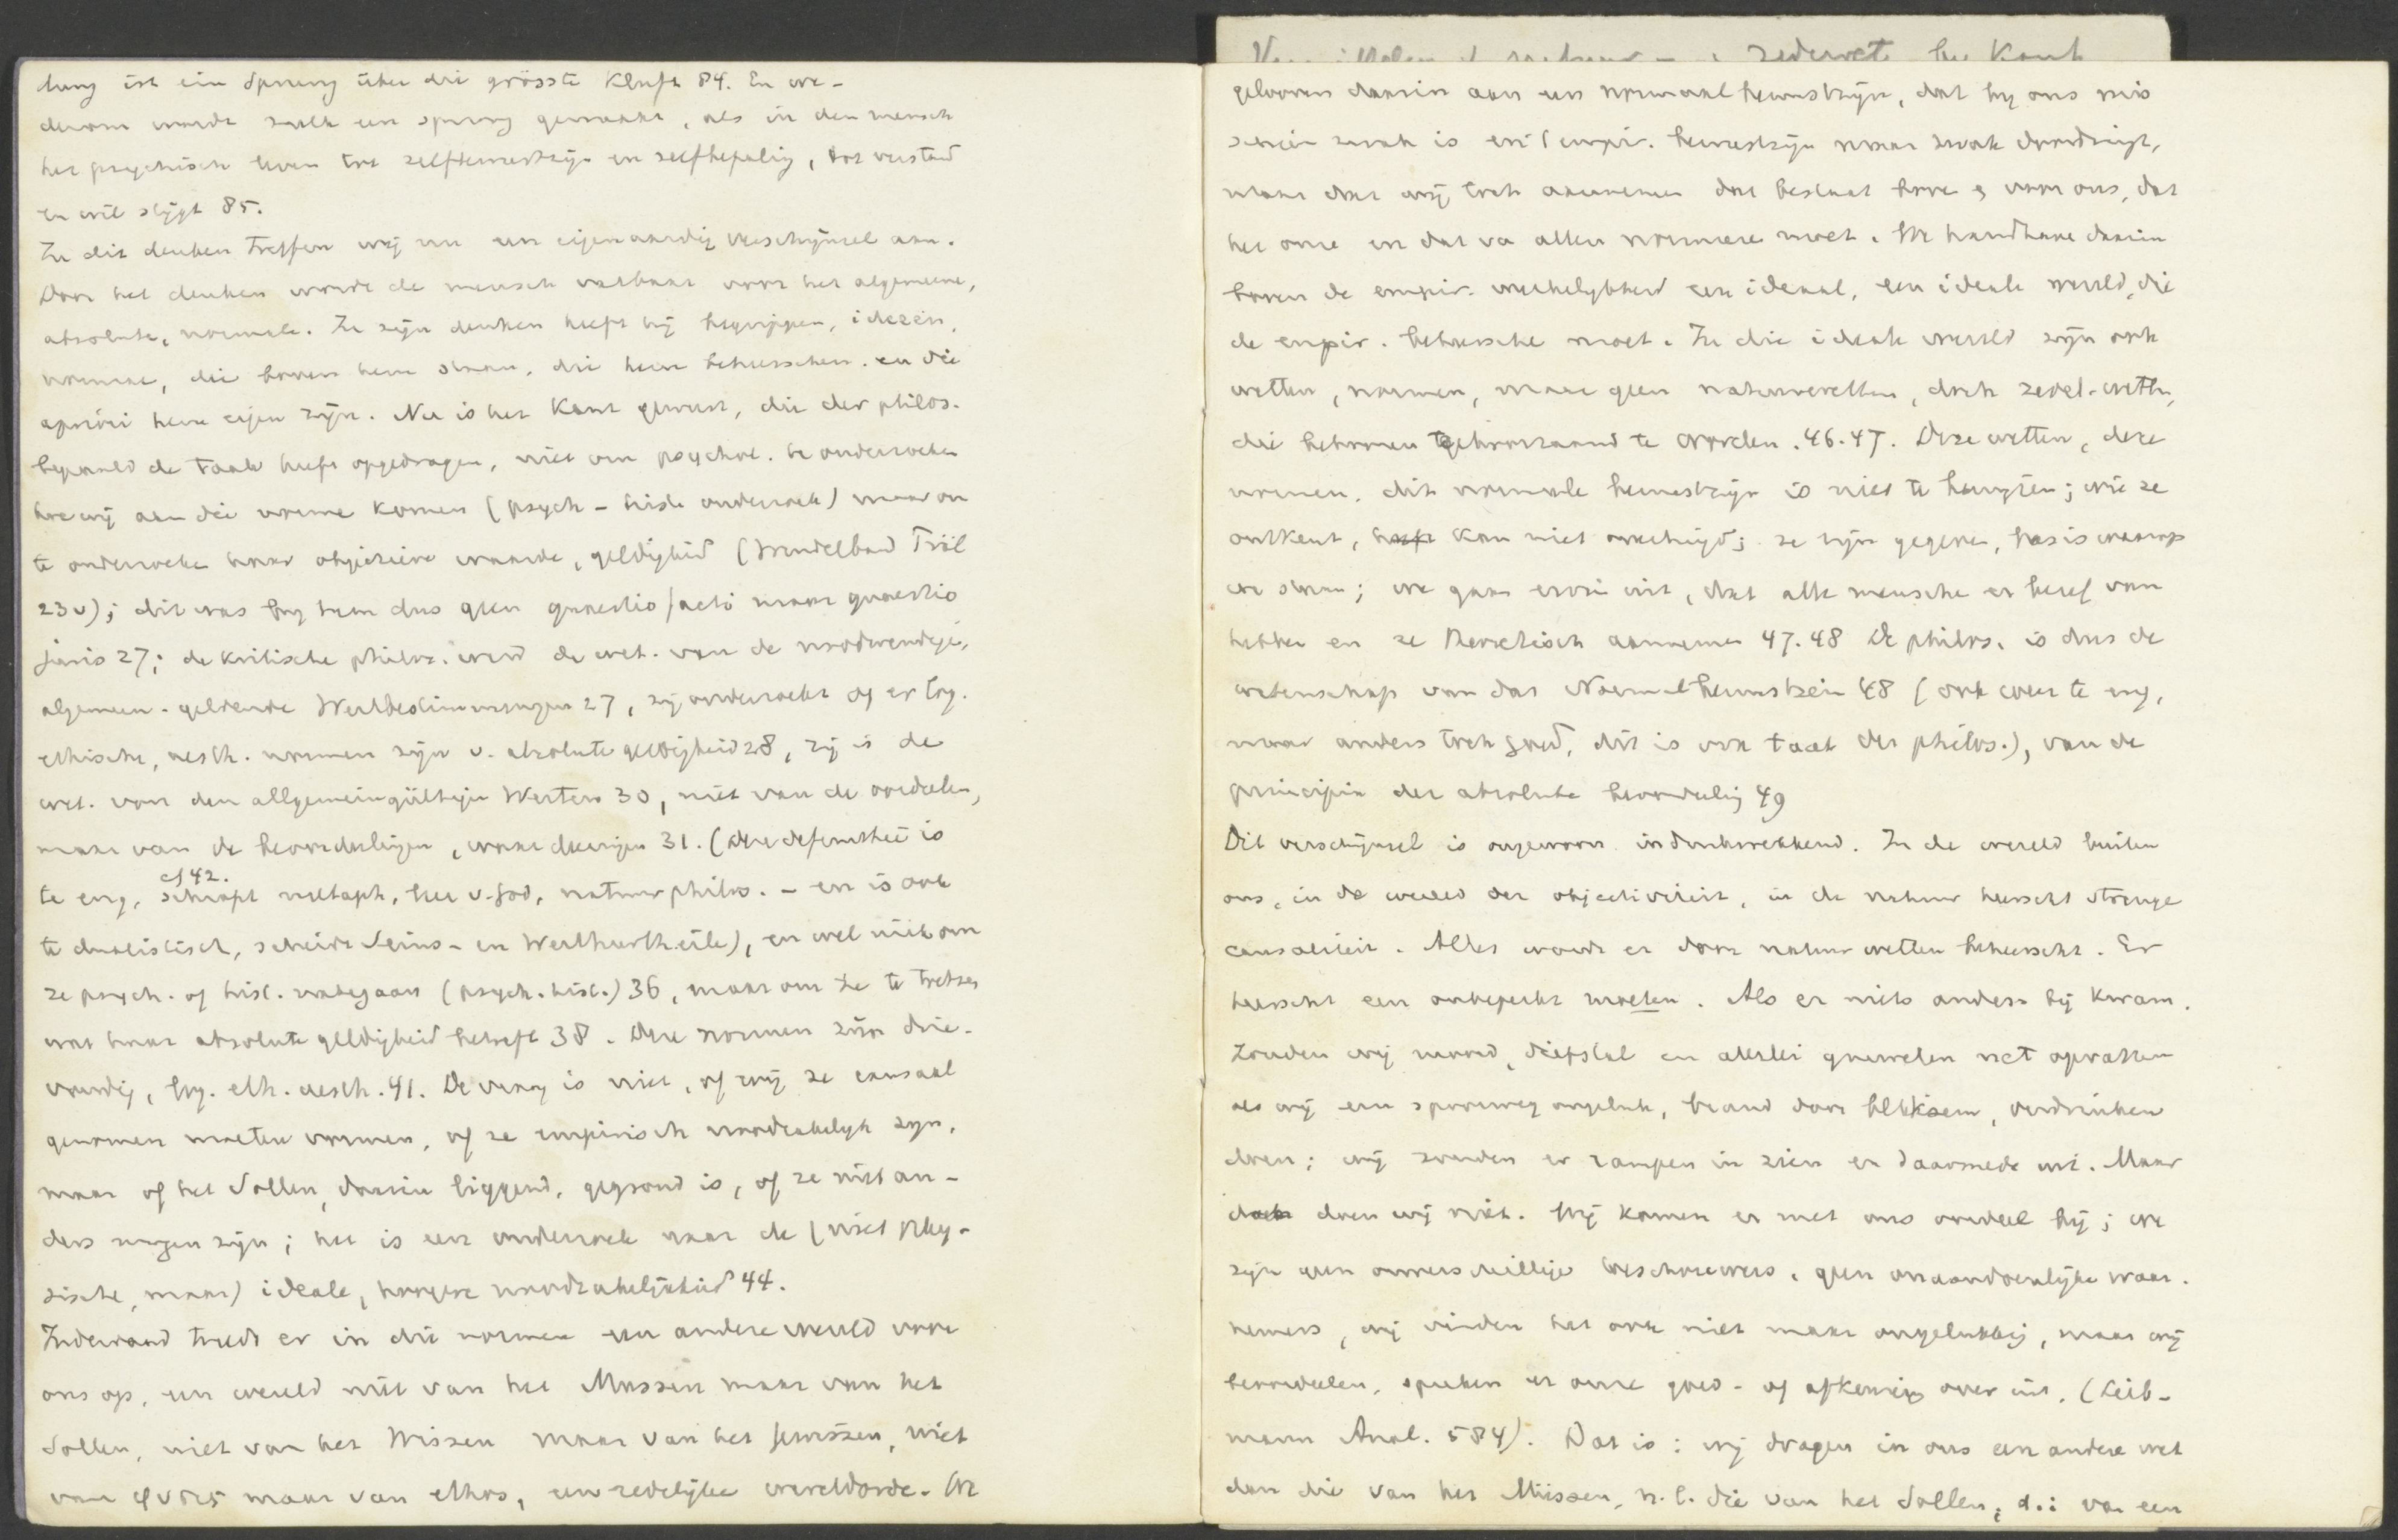 dung ist ein Sprung über die grösste Kluft 84. En we-
derom wordt zulk een sprong gemaakt, als in den mensch
het psychisch leven tot zelfbewustzijn en zelfbepaling, tot verstand
en wil stijgt 85.
In dit denken treffen wij nu een eigenaardig verschijnsel aan.
Door het denken wordt de mensch vatbaar voor het algemeene,
absolute, normale. In zijn denken heeft hij begrippen, ideeën,
normen, die boven hem staan, die hem beheerschen. en die
apriori hem eigen zijn. Nu is het Kant geweest, die der philos.
bepaald de taak heeft opgedragen, niet om psychol. te onderzoeken
hoe wij aan die norme komen (psych-histe onderzoek) maar om
te onderzoeken haar objectieve waarde, geldigheid (Windelband Präl
23v); dit was by hem dus geen quaestio facti maar quaestio
juris 27; de kritische philos. werd de wet. van de noodwendige,
algemeen-geldende Werthbestimmungen 27, zij onderzoekt of er log.
ethische, aesth. normen zijn v. absolute geldigheid 28, zij is de
wet. van den allgemeingültigen Werten 30, niet van de oordeelen,
maar van de beoordeelingen, waardeeringen 31. (Deze definitie is
cf 42.
te eng, schrapt metaph, leer v. God, natuurphilos. - en is ook
te dualistisch, scheidt Seins- en Werthurtheile), en wel niet om
ze psych. of hist. nategaan (psych. hist.) 36, maar om ze te toetsen
wat haar absolute geldigheid betreft 38. Deze normen zijn drie-
voudig, log. eth. aesth. 41. De vraag is niet, of wij ze causaal
genomen moeten vormen, of ze empirisch noodzakelijk zijn,
maar of het Sollen, daarin liggend, gegrond is, of ze niet an-
ders mogen zijn; het is een onderzoek naar de (niet phy-
sische, maar) ideale, hoogere noodzakelijkheid 44.
Inderdaad treedt er in die normen een andere wereld voor
ons op, een wereld niet van het Müssen maar van het
Sollen, niet van het Wissen maar van het Gewissen, niet
van φυσις maar van ethos, een zedelijke wereldorde. We
Zedewet bij Kant
gelooven daarin aan een normaal bewustzijn, dat by ons mis
schien zwak is en 't empir. bewustzijn maar zwak doordringt,
maar dat wij toch aannemen dat bestaat boven & voor ons, dat
het onze en dat va allen normeere moet. We handhave daarin
boven de empir. werkelijkheid een ideaal, een ideale wereld, die
de empir. beheersche moet. In die ideale wereld zijn ook
wetten, normen, maar geen natuurwetten, doch zedel-wetten,
die behooren gehoorzaamd te worden. 46.47. Deze wetten, deze
normen, dit normale bewustzijn is niet te bewijzen; wie ze
ontkent, kan niet overtuigd; ze zijn gegeven, basis waarop
we staan; we gaan ervan uit, dat alle mensche er besef van
hebben en ze theoretisch aannemen 47.48 De philos. is dus de
wetenschap van das Normalbewustsein 48 (ook weer te eng,
maar anders toch goed, dit is ook taak der philos.), van de
principia der absolute beoordeeling 49
Dit verschijnsel is ongewoon indrukwekkend. In de wereld buiten
ons, in de wereld der objectiviteit, in de natuur heerscht strenge
causaliteit. Alles wordt er door natuurwetten beheerscht. Er
heerscht een onbeperkt moeten. Als er niets anders bij kwam,
zouden wij moord, diefstal en allerlei gruwelen net opvatten
als wij een spoorweg ongeluk, brand door bliksem, verdrinken
doen; wij zouden er rampen in zien en daarmede uit. Maar
doch doen wij niet. Wij komen er met ons oordeel bij; we
zijn geen onverschillige beschouwers, geen onaandoenlijke waar-
nemers, wij vinden het ook niet maar ongelukkig, maar wij
beoordeelen, spreken er onze goed- of afkeuring over uit. (Lieb-
mann Anal. 584). Dat is: wij dragen in ons een andere wet
dan die van het Müssen, n.l. die van het Sollen, d.i. van een